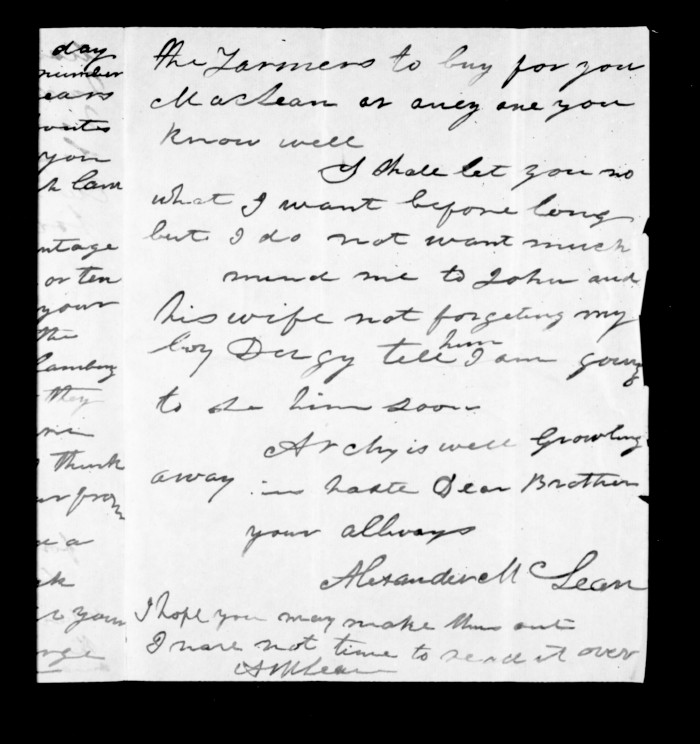 day
number
ears
you
h lam
ntage
or ten
your
the
lambing
they
think
ur from
e a
your
the Farmers to buy for you
MacLean or aney one you
know well
I shall let you no
what I want before long
but I do not want much
mind me to John and
his wife not forgeting my
boy Dugy tell him I am going
to se him soon
Archy is well Growling
away in haste Dear Brother
your allways
Alexander McLean
I hope you may make this out
I have not time to read it over
AMcLean